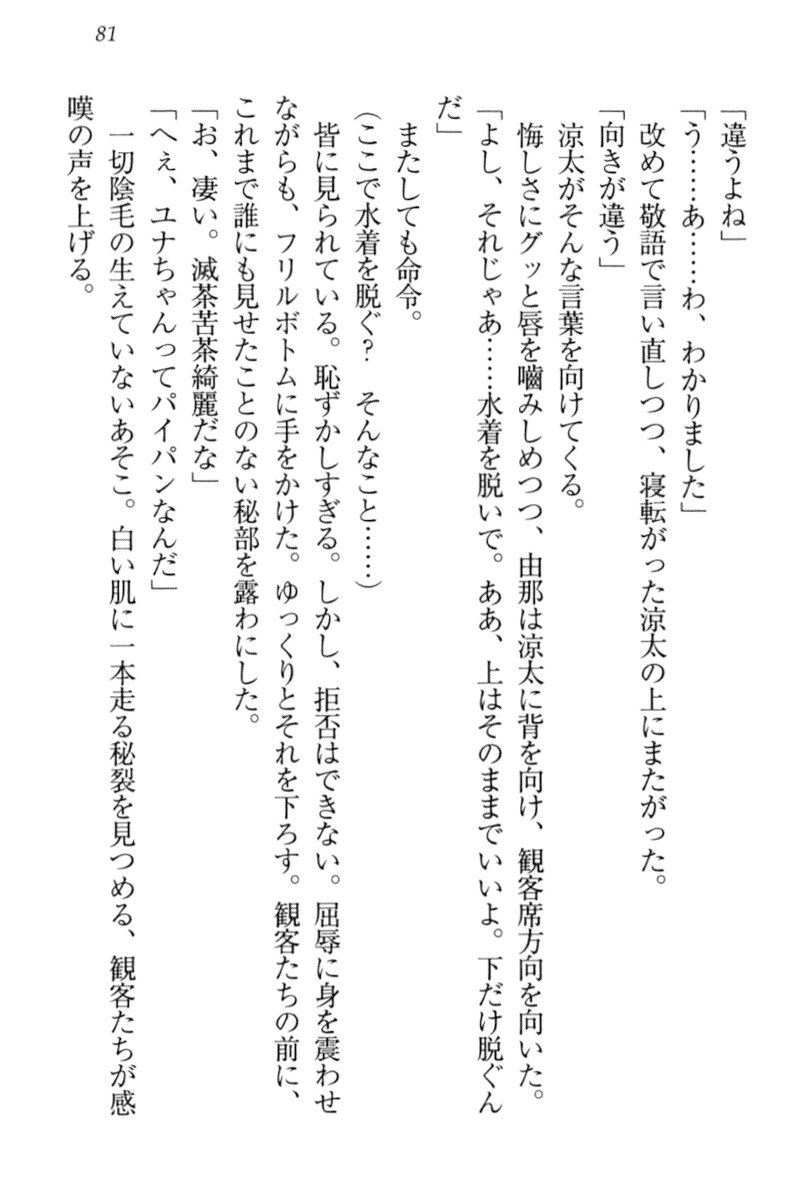 81
「違うよね」
「う……あ……わ、わかりました」
改めて敬語で言い直しつつ、寝転がった涼太の上にまたがった。
「向きが違う」
涼太がそんな言葉を向けてくる。
悔しさにグッと唇を嚙みしめつつ、由那は涼太に背を向け、観客席方向を向いた。
「よし、それじゃあ……水着を脱いで。ああ、上はそのままでいいよ。下だけ脱ぐん
だ」
またしても命令。
（ここで水着を脱ぐ？　そんなこと……）
皆に見られている。恥ずかしすぎる。しかし、拒否はできない。屈辱に身を震わせ
ながらも、フリルボトムに手をかけた。ゆっくりとそれを下ろす。観客たちの前に、
これまで誰にも見せたことのない秘部を露わにした。
「お、凄い。滅茶苦茶綺麗だな」
「へぇ、ユナちゃんってパイパンなんだ」
一切陰毛の生えていないあそこ。白い肌に一本走る秘裂を見つめる、観客たちが感
嘆の声を上げる。